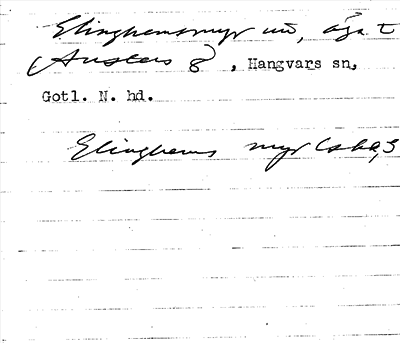 Elinghemsmyr un, äga t
Austers 8, Hangvars sn,
Gotl. N. hd.
Elinghems myr